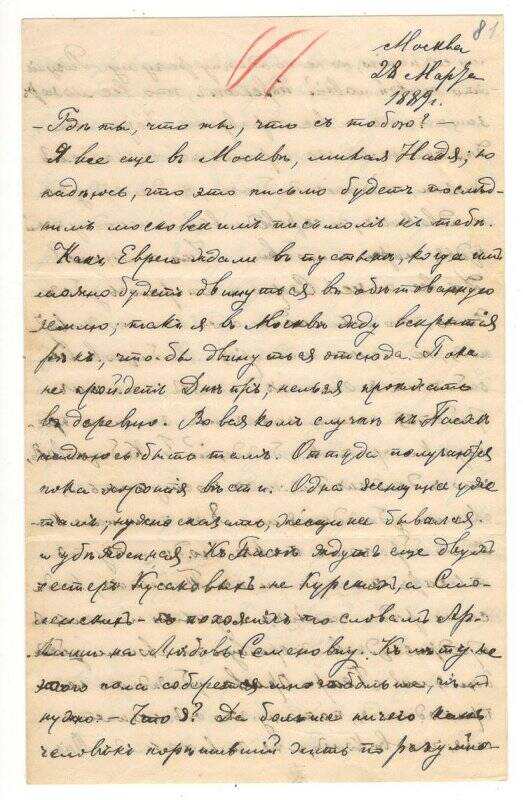 81
Москва
28 Марта
1889г.
- Гдѣ ты, что ты, что съ тобою? -
Я все еще въ Москвѣ, милая Надя; но
надѣюсь, что это письмо будетъ послѣд-
нимъ московскимъ письмомъ къ тебѣ.
Какъ Евреи ждали въ пустынѣ, когда имъ
можно будетъ двинуться въ обѣтованную
землю, такъ я въ Москвѣ жду вскрытія
рѣкъ, что бы двинуться отсюда. Пока
не пройдетъ Днѣпръ, нельзя проѣхать
въ деревню. Во всякомъ случаѣ къ Пасхѣ
надѣюсь быть тамъ. Оттуда получаются
пока хорошія вѣсти. Одна женщина уже
тамъ, нужно сказать, женщина бывалая
и убѣжденная. Къ Пасхѣ ждутъ еще двухъ
сестеръ не Курскихъ, а Смо-
ленскихъ - похожихъ по словамъ Ар-
на Любовь Семеновну. Къ лѣту же
этого пола соберется много больше, чѣмъ
нужно. - Что я? Да больше ничего какъ
человѣкъ порѣшившій жить по разумѣнію